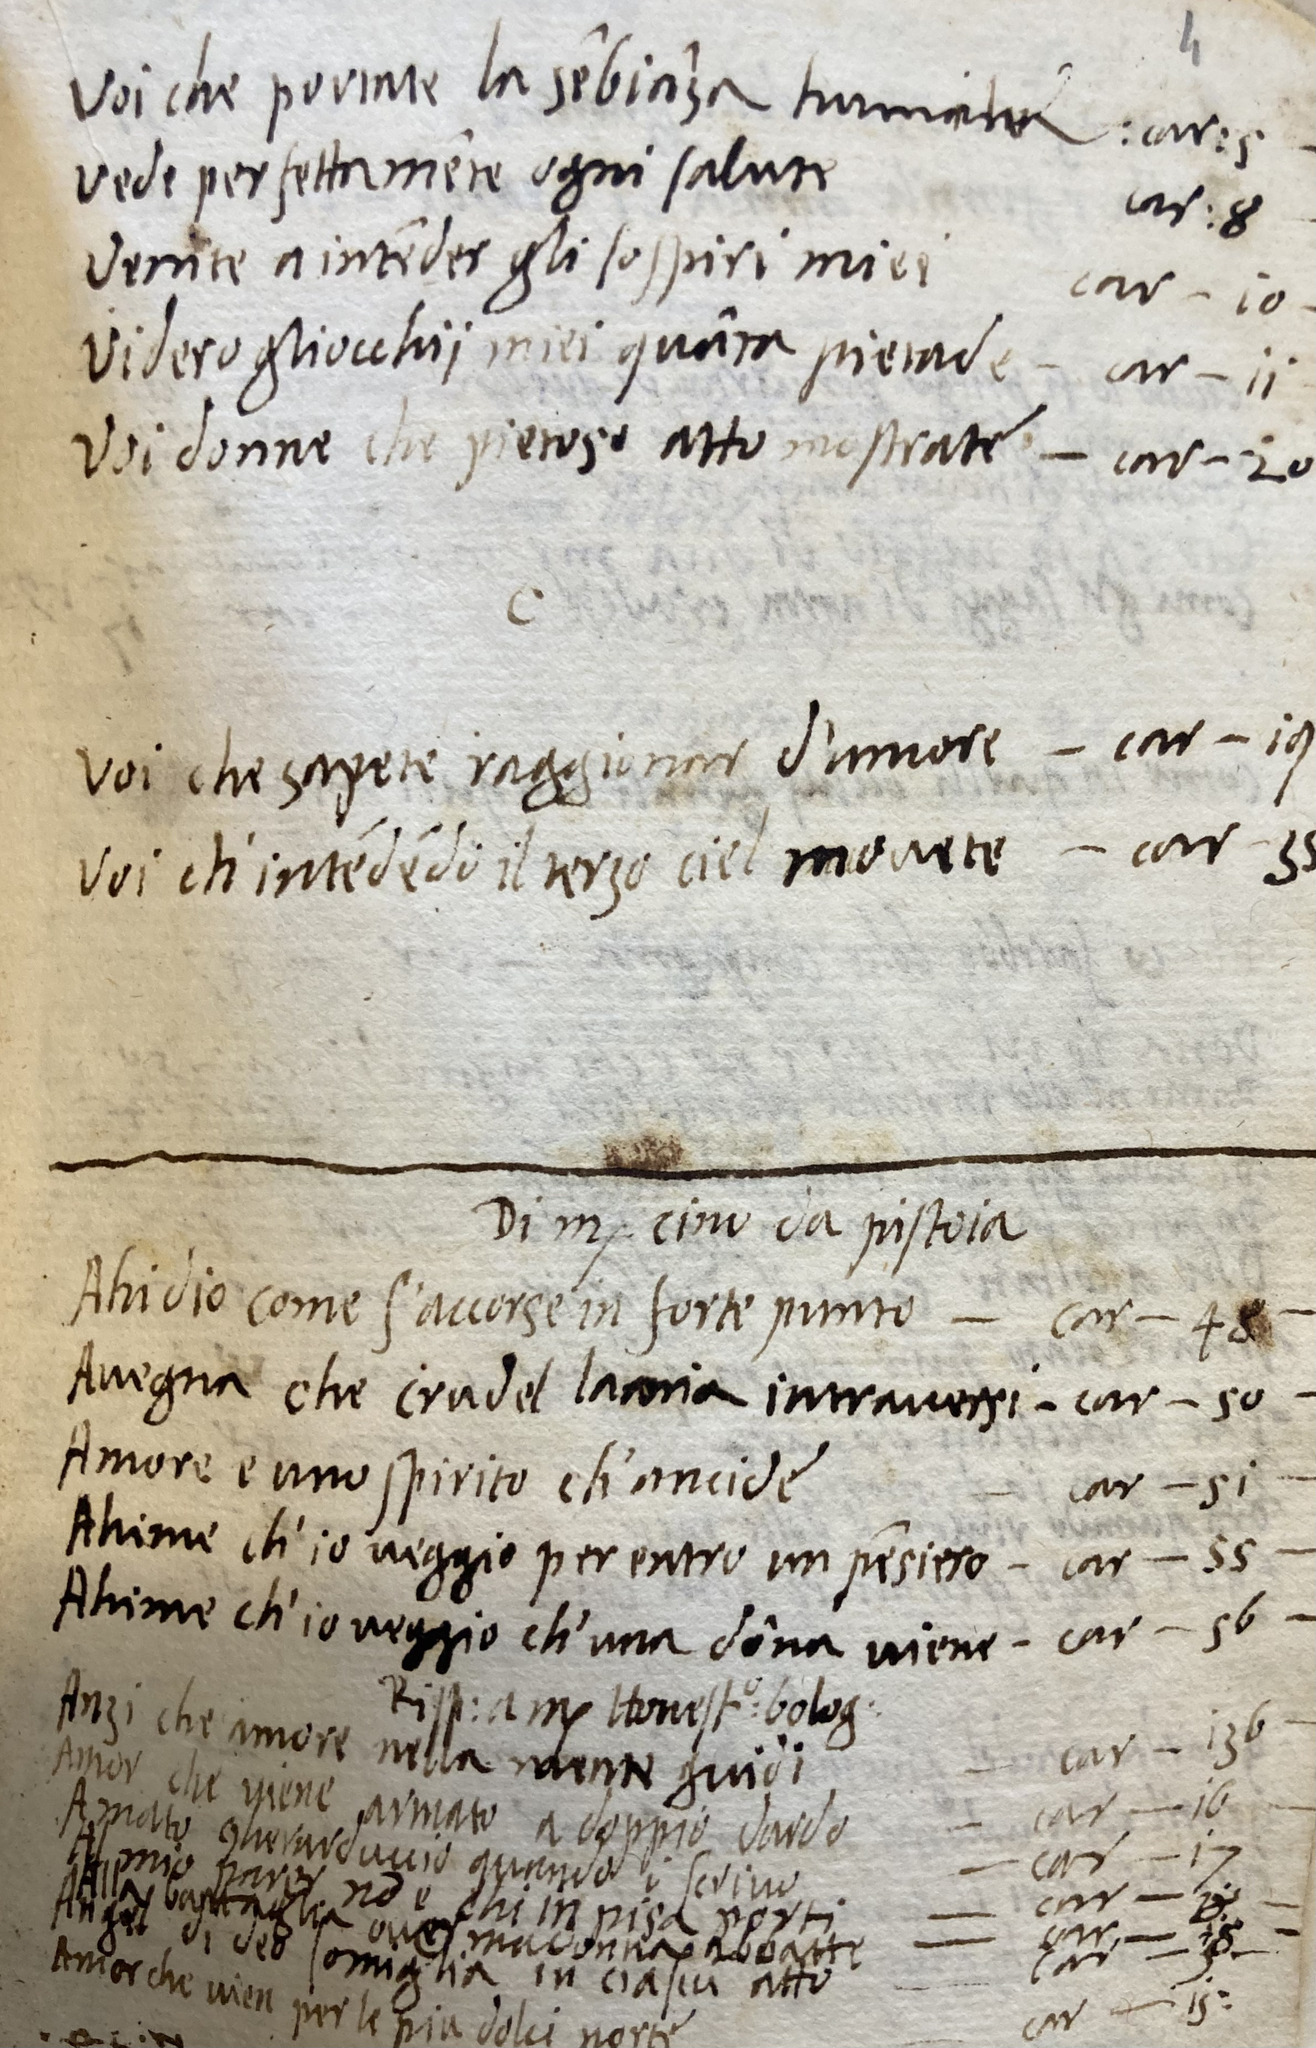 4
Voi che portate la sẽbiãza humile : car: 5 -
Vede perfettamẽte ogni salute car: 8
Venite a intẽder gli sospiri miei car - 10
Videro gliocchij miei quãta pietade - car - 11
Voi donne che pietoso atto mostrate - car - 20
C
Voi che sapete raggionar d'amore - car - 19
Voi ch'intẽdẽdo il terzo ciel mouete - car - 35
Di m. cino da pistoia
Ahi dio come s'accorse in forte punto - car - 48 -
Auegna che crudel lancia intrauersi - car - 50 -
Amore e uno spirito ch'ancide - car - 51 -
Ahime ch'io ueggio per entro un pẽsiero - car - 55 -
Ahime ch'io ueggio ch'una dõna uiene - car - 56 -
Risp: a m. Honest.º bolog.
Anzi che amore nella mente guidi - car - 136
Amor che uiene armato a doppio dardo - car - 16
Amato gherarduccio quando i scriuo - car - 17
Al mio parer nõ e chi in pisa porti - car -
Alla battaglia oue madonna abbatte - car - 18 -
Angel di deo somiglia in ciascu atto - car -
Amor che uien per le piu dolci porte car - 15: